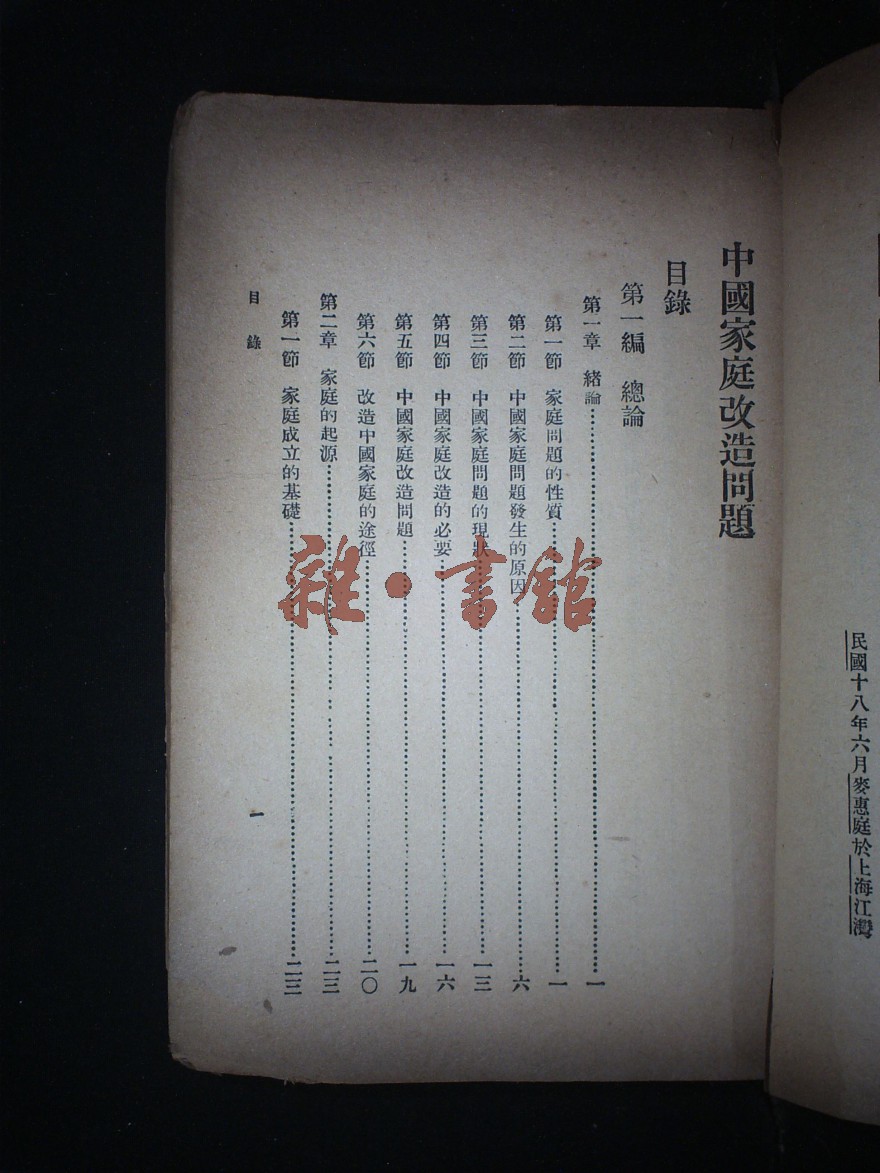 民國十八年六月麥惠庭於上海江灣
中國家庭改造問題
目錄
第一編 總論
第一章 緒論……一
第一節 家庭問題的性質……一
第二節 中國家庭問題發生的原因……六
第三節 中國家庭問題的現狀……一三
第四節 中國家庭改造的必要……一六
第五節 中國家庭改造問題……一九
第六節 改造中國家庭的途徑……二〇
第二章 家庭的起源……二三
第一節 家庭成立的基礎……二三
目錄
一
雜·書館